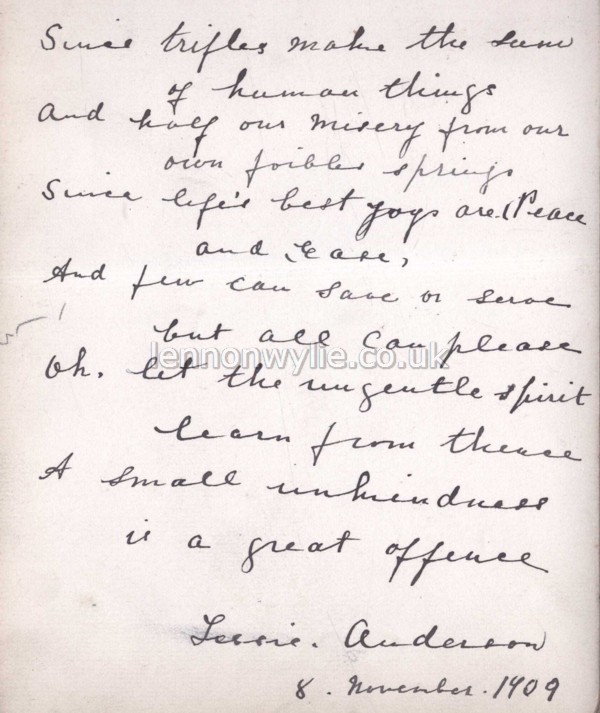 Since trifles make the sum
of human things
And half our misery from our
own foibles springs
Since life's best yoys are Peace
and Ease,
And few can save or serve
but all can please
lennonwylie.co.uk
Oh. let the ungentle spirit
learn from thence
A small unkindness
is a great offence
Anderson
8. November. 1909